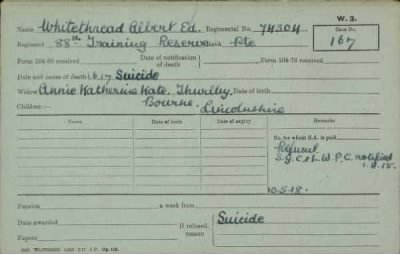 W. 3.
Name Whitethread Albert Ed. Regimental No. 74304
Case No. 167
Regiment 88th Training Reserve Rank Pte
Form 104-88 received Date of notification of death Form 104-76 received
Date and cause of death 1.6.17 Suicide
Widow Annie Katherine Kate. Thurlby. Date of birth
Bourne. Lincolnshire
Children:—
Name Date of birth Date of expiry Remarks
No. for whom S.A. is paid
Refusal
S.G.C. & L.W.P.C. notified
10.5.18.
Pension a week from
Date awarded If refused, reason Suicide
Papers